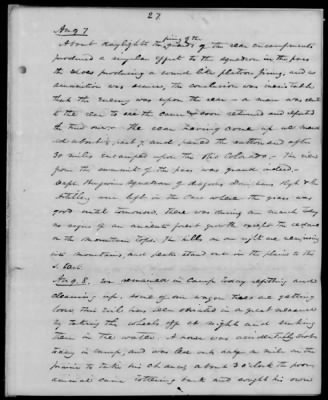 27
Aug 7
About daylight the firing of the guards of the rear encampments
produced a singular effect to the squadron in the pass
the echoes producing a sound like platoon firing, and as
ammunition was scarce, the conclusion was inevitable
that the enemy was upon the rear – a man was sent
to the rear to see the cause & soon returned and reported
the The rear having come up we moved
at about 7, and joined the
30 miles encamped upon the Rio Colorado – The view
from the summit of the pass was grand indeed –
Capt. squadron of dragoons & the
artillery were left in the where the grass was
good until tomorrow, there was during our march today
no signs of an ancient forest growth except the cedars
on the mountain tops. The hills on our right are
into mountains, and peaks stand out in the plains to the
S. East.
Aug 8. We remained in Camp today refitting and
cleaning up. some of our wagon tires are getting
loose this evil has been obviated in a great measure
by taking the wheels off at nights and sinking
them in the water. A horse was accidentally shot
today in camp, and was led out only a mile on the
prairie to take his chance, about 3 o'clock the poor
animal came tottering back and sought his own